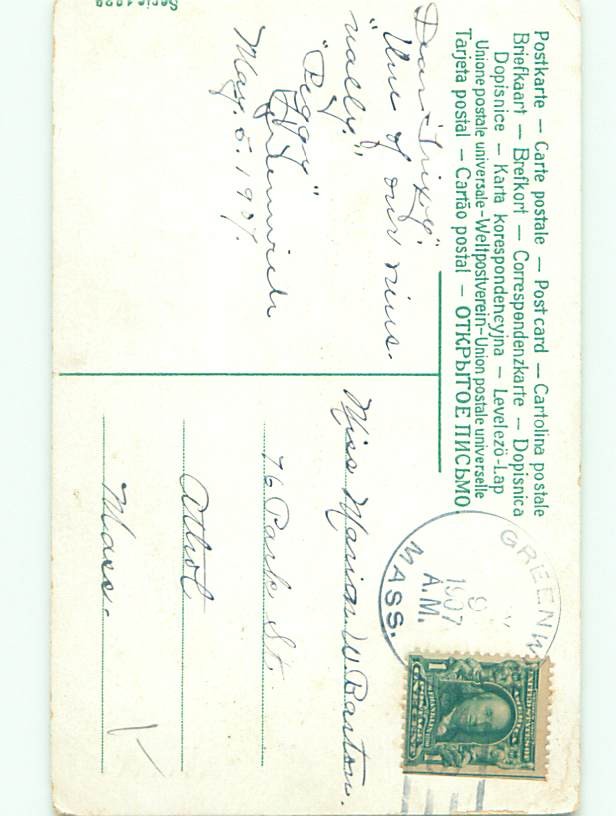 Postkarte — Carte postale — Post card — Cartolina postale
Briefkaart — Brefkort — Correspondenzkarte — Dopisnica
Dopisnice — Karta korespondencyjna — Levelező-Lap
Unione postale universale-Weltpostverein-Union postale universelle
Tarjeta postal — Cartão postal — ОТКРЫТОЕ ПИСЬМО
Dear Trixy,
"One of our
"Peggy"
Greenwich
May. 5. 1907.
Serie 1929
GREENW
1907
A.M.
MASS.
1 1
Miss Marian W Barton.
76 Park St.
Athol
Mass.